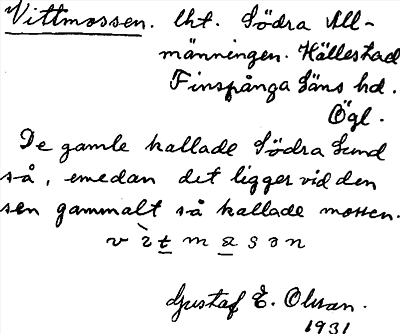 Vittmossen. lht. Södra All-
männingen. Hällestad
Finspånga läns hd.
Ögl.
De gamle kallade Södra Lund
så, emedan det ligger vid den
sen gammalt så kallade mossen.
vìtmasən
Gustaf E. Olsson.
1931